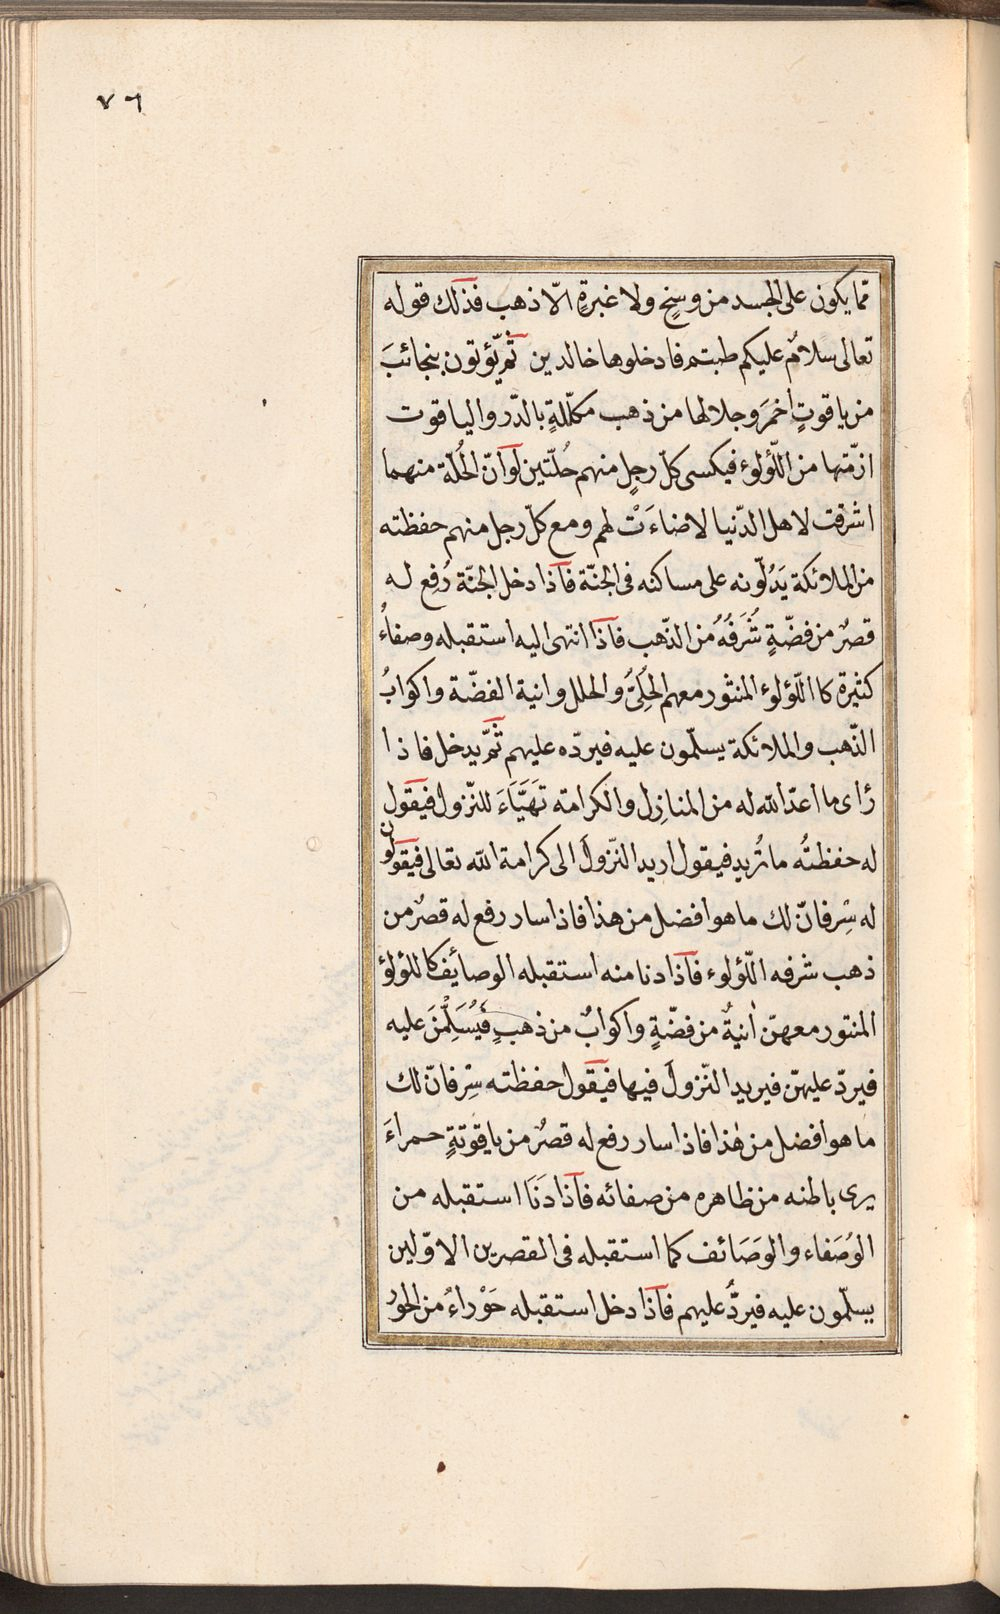 ٧٦
ممّا يكون على الجسد من وسخٍ ولا غبرةٍ الّا ذهب فذلك قوله
تعالى سلامٌ عليكم طبتم فادخلوها خالدين ثم يؤتون بنجائبَ
من ياقوتٍ احمَرَ وجلالها من ذهب مكلّلةٍ بالدّر والياقوت
ازمّتها من اللّؤلوء فيكسى كلّ رجلٍ منهم حُلّتين لو انّ الحُلّة منهما
اشرقت لاهل الدّنيا لاضاءَتْ لهم ومع كلّ رجل منهم حفظته
من الملائكة يَدُلّونه على مساكنه فى الجنّة فاذا دخل الجنّة رُفِع له
قصرٌ من فضّةٍ شُرَفُهُ من الذّهب فاذا انتهى اليه استقبله وصفاءُ
كثيرة كاللّؤلوء المنثور معهم الحُلِىُّ والحلل وانية الفضّة واكوابُ
الذّهب والملائكة يسلّمون عليه فيردّه عليهم ثُمّ يدخل فاذا
رأى ما اعدّ الله له من المنازِل والكرامة تهَيَّاءَ للنّزول فيقول
له حفظتُه ما تُريد فيقول اريد النّزولَ الى كرامة الله تعالى فيقولون
له سِر فانّ لك ما هو افضل من هذا فاذا سار رفع له قصرٌ من
ذهب شرفه اللّؤلوء فاذا دنا منه استقبله الوصائف كاللؤلؤ
المنثور معهنّ اٰنيةٌ من فضّةٍ واكوابٌ من ذهبٍ فَيُسَلِّمْنَ عليه
فيردّ عليهنّ فيريد النّزولَ فيها فيقول حفظته سِر فانّ لك
ما هو افضل من هٰذا فاذا سار رفع له قصرٌ من ياقوتةٍ حمراءَ
يرى باطنه من ظاهره من صفائه فاذا دَنَا استقبله من
الوُصَفاء والوَصَائف كما استقبله فى القصرين الاوّلين
يسلّمون عليه فيردُّ عليهم فاذا دخل استقبله حَوْراءُ من الحور